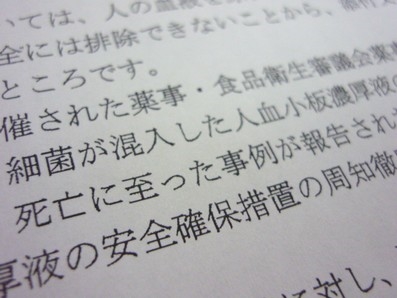 ては、人の血液を
全には排除できないことから、
ところです。
催された薬事・食品衛生審議会薬事
細菌が混入した人血小板濃厚液の
死亡に至った事例が報告された
厚液の安全確保措置の周知徹底
に対し、